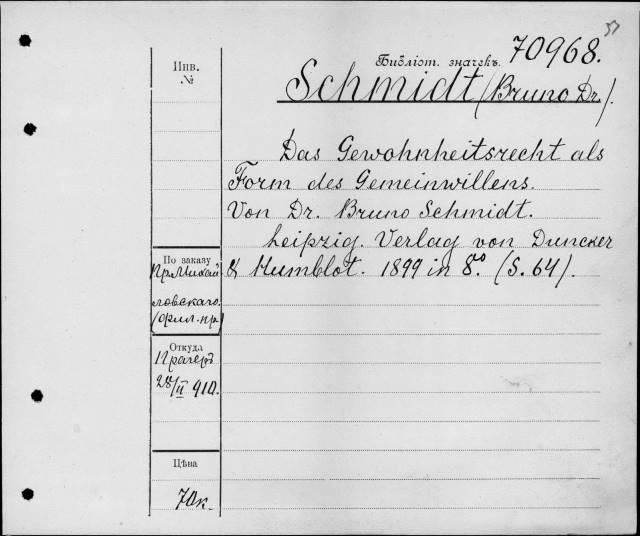 53
Библіот. значекъ. 70968.
Инв.
№
Schmidt (Bruno Dr.).
Das Gewohnheitsrecht als
Form des Gemeinwillens.
Von Dr. Bruno Schmidt.
Leipzig. Verlag von Duncker
& Humblot. 1899 in 8.º (S. 64).
По заказу
Пр. Михай
ловскаго
(фил. пр.)
Откуда
Прагеръ
28/II 910.
Цѣна
70к.